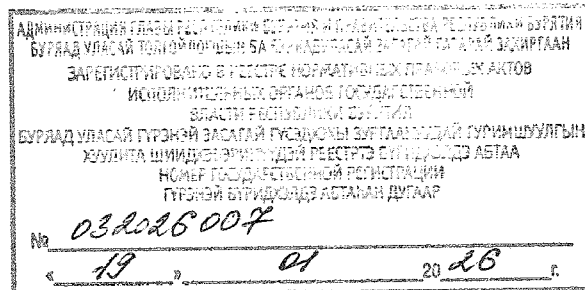 АДМИНИСТРАЦИЯ ГЛАВЫ РЕСПУБЛИКИ БУРЯТИЯ И ПРАВИТЕЛЬСТВА РЕСПУБЛИКИ БУРЯТИЯ
БУРЯАД УЛАСАЙ ТОЛГОЙЛОГШЫН БА БУРЯАД УЛАСАЙ ЗАСАГАЙ ГАЗАРАЙ ЗАХИРГААН
ЗАРЕГИСТРИРОВАНО В РЕЕСТРЕ НОРМАТИВНЫХ ПРАВОВЫХ АКТОВ
ИСПОЛНИТЕЛЬНЫХ ОРГАНОВ ГОСУДАРСТВЕННОЙ
ВЛАСТИ РЕСПУБЛИКИ БУРЯТИЯ
БУРЯАД УЛАСАЙ ГҮРЭНЭЙ ЗАСАГАЙ ГҮЙСЭДХЭХЫ ЗУРГААНУУДАЙ ГУРИМШУУЛГЫН
ХУУЛИТА РЕЕСТРТЭ АБТАА
НОМЕР ГОСУДАРСТВЕННОЙ РЕГИСТРАЦИИ
ГҮРЭНЭЙ БҮРИДХЭЛДЭ АБТАҺАН ДУГААР
№ 032026007
« 19 » 01 20 26 г.